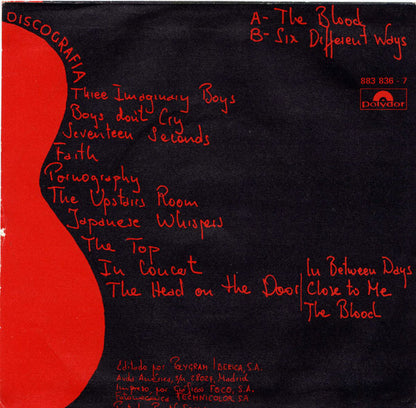 DISCOGRAFIA
A- The Blood
B- Six Different Ways
883 836 - 7
Polydor
Three Imaginary Boys
Boys don't Cry
Seventeen Seconds
Faith
Pornography
The Upstairs Room
Japanese Whispers
The Top
In Concert
The Head on the Door
In Between Days
Close to Me
The Blood
Editado por POLYGRAM IBERICA, S.A.
Madrid
Impreso por Gráficas FOCO, S.A.
Fotomecánica TECHNICOLOR SA